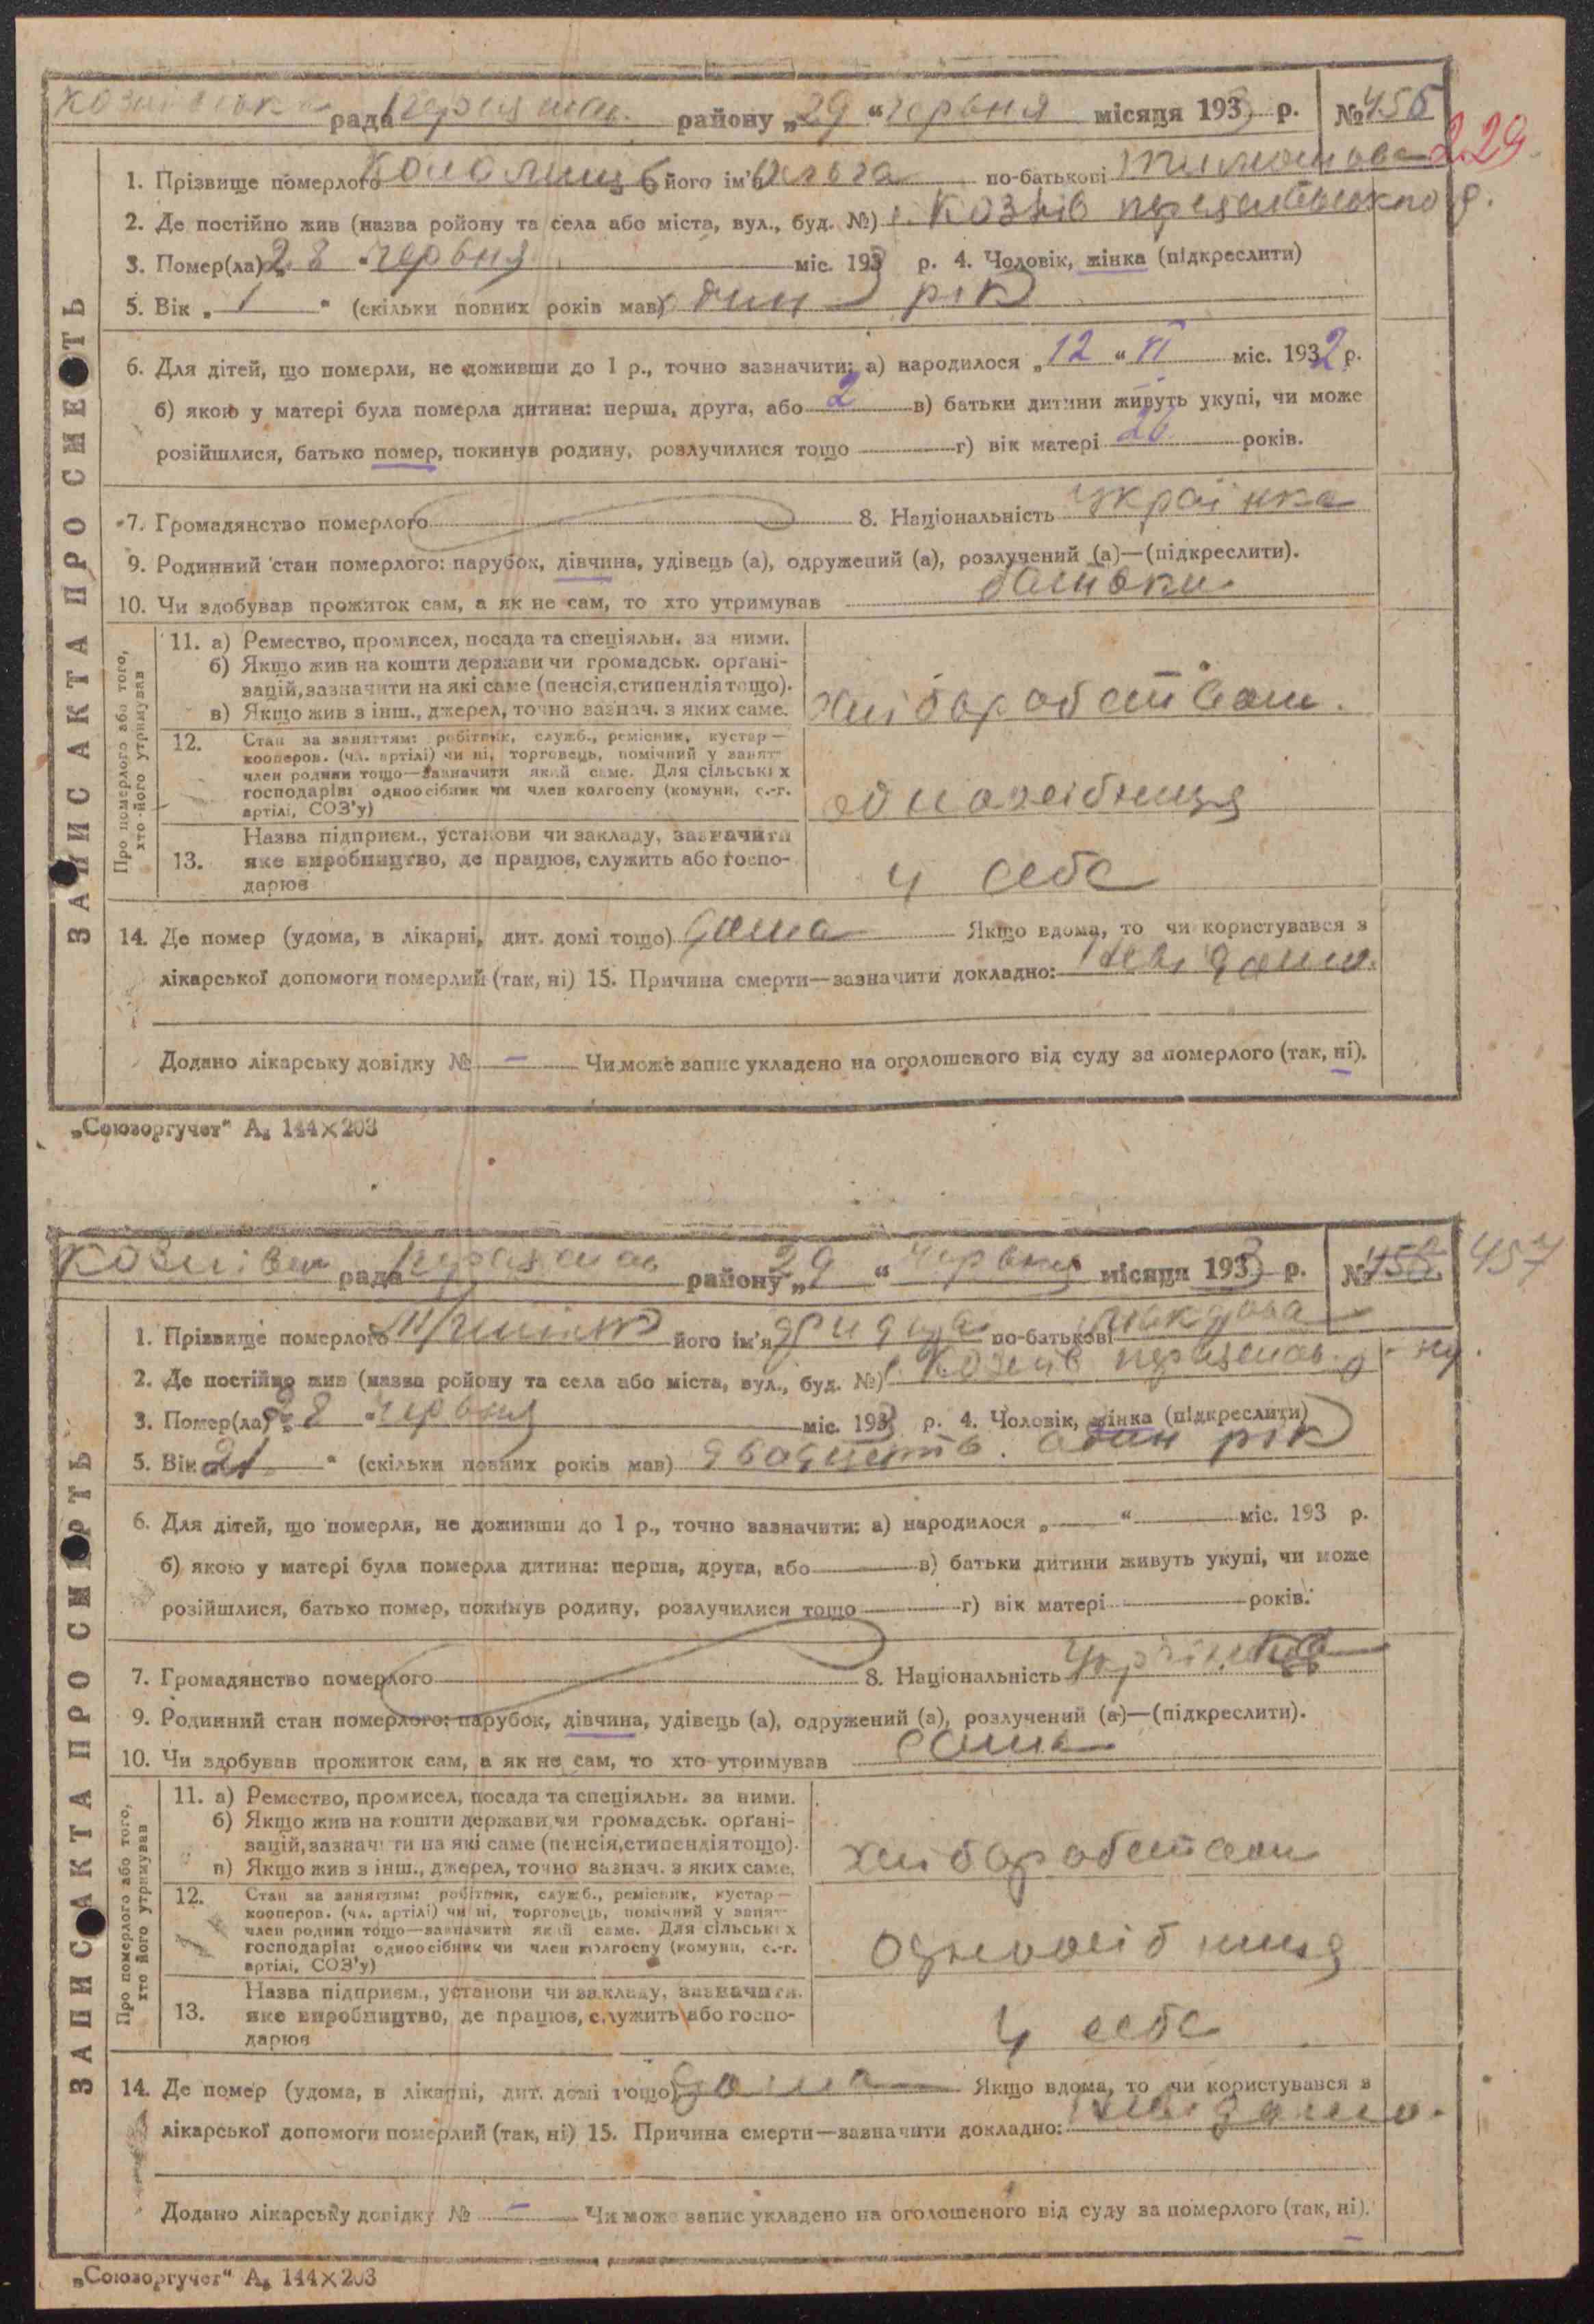 рада района „29 “ червня місяця 1933 р. № 456
229
1. Прізвище померлого його ім'я Ольга по-батькові
2. Де постійно жив (назва ройону та села або міста, вул., буд. №) с. Козіїв
3. Помер(ла) 28 червня міс. 1933 р. 4. Чоловік, жінка (підкреслити)
5. Вік „ 1 “ (скільки повних років мав) один рік
6. Для дітей, що померли, не доживши до 1 р., точно зазначити: а) народилося „ 12 “ VI міс. 1932 р.
б) якою у матері була померла дитина: перша, друга, або 2 в) батьки дитини живуть укупі, чи може
розійшлися, батько помер, покинув родину, розлучилися тощо г) вік матері 26 років.
7. Громадянство померлого 8. Національність Українка
9. Родинний стан померлого: парубок, дівчина, удівець (а), одружений (а), розлучений (а)—(підкреслити).
10. Чи здобував прожиток сам, а як не сам, то хто утримував батьки
Про померлого або того, хто його утримував
11. а) Ремество, промисел, посада та спеціяльн. за ними.
б) Якщо жив на кошти держави чи громадськ. орґані-
зацій, зазначити на які саме (пенсія, стипендія тощо).
в) Якщо жив з інш., джерел, точно зазнач. з яких саме.
хліборобством.
12. Стан за заняттям: робітник, служб., ремісник, кустар—
кооперов. (чл. артілі) чи ні, торговець, помічний у занят-
член родини тощо—зазначити який саме. Для сільських
господарів: одноосібник чи член колгоспу (комуни, с.-г.
артілі, СОЗ'у)
одноосібниця
13. Назва підприєм., установи чи закладу, зазначити
яке виробництво, де працює, служить або госпо-
дарює
у себе
14. Де помер (удома, в лікарні, дит. домі тощо) дома Якщо вдома, то чи користувався з
лікарської допомоги померлий (так, ні) 15. Причина смерти—зазначити докладно: Невідомо.
Додано лікарську довідку № – Чи може запис укладено на оголошеного від суду за померлого (так, ні).
ЗАПИС АКТА ПРО СМЕРТЬ
„Союзоргучет“ А₅ 144×203
рада району „29 “ червня місяця 1933 р. № 457
1. Прізвище померлого його ім'я по-батькові
2. Де постійно жив (назва ройону та села або міста, вул., буд. №) с. Козіїв
3. Помер(ла) 28 червня міс. 1933 р. 4. Чоловік, жінка (підкреслити)
5. Вік 21 “ (скільки повних років мав) двадцять один рік
6. Для дітей, що померли, не доживши до 1 р., точно зазначити: а) народилося „ “ міс. 193 р.
б) якою у матері була померла дитина: перша, друга, або в) батьки дитини живуть укупі, чи може
розійшлися, батько помер, покинув родину, розлучилися тощо г) вік матері років.
7. Громадянство померлого 8. Національність Українка
9. Родинний стан померлого: парубок, дівчина, удівець (а), одружений (а), розлучений (а)—(підкреслити).
10. Чи здобував прожиток сам, а як не сам, то хто утримував сама
Про померлого або того, хто його утримував
11. а) Ремество, промисел, посада та спеціяльн. за ними.
б) Якщо жив на кошти держави чи громадськ. орґані-
зацій, зазначити на які саме (пенсія, стипендія тощо).
в) Якщо жив з інш., джерел, точно зазнач. з яких саме.
хліборобством
12. Стан за заняттям: робітник, служб., ремісник, кустар—
кооперов. (чл. артілі) чи ні, торговець, помічний у занят-
член родини тощо—зазначити який саме. Для сільських
господарів: одноосібник чи член колгоспу (комуни, с.-г.
артілі, СОЗ'у)
одноосібниця
13. Назва підприєм., установи чи закладу, зазначити
яке виробництво, де працює, служить або госпо-
дарює
у себе
14. Де помер (удома, в лікарні, дит. домі тощо) дома Якщо вдома, то чи користувався з
лікарської допомоги померлий (так, ні) 15. Причина смерти—зазначити докладно: Невідомо.
Додано лікарську довідку № – Чи може запис укладено на оголошеного від суду за померлого (так, ні).
ЗАПИС АКТА ПРО СМЕРТЬ
„Союзоргучет“ А₅ 144×203